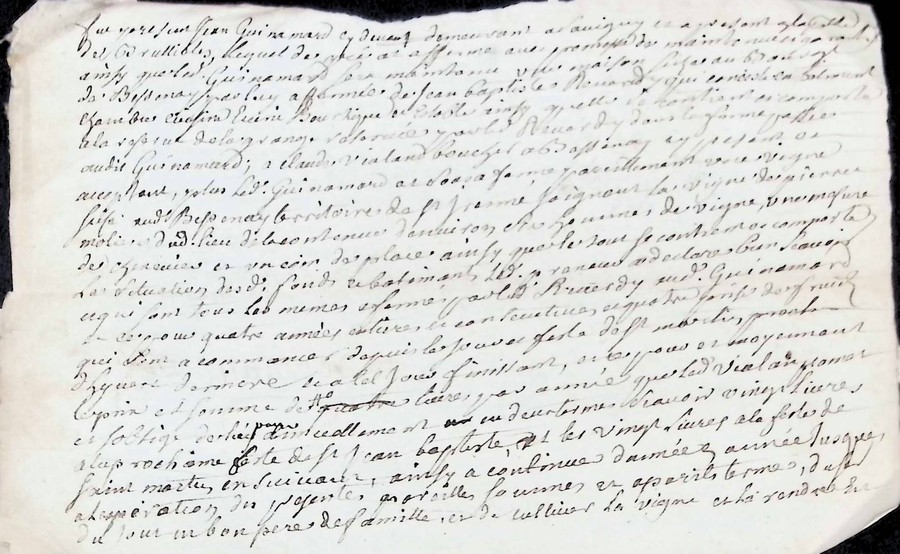 fut present Jean Guinamard cy devant demeurant a Savigny et a present a la
des lequel de afferme avec promesse de maintenue et garantie
ainsy que led. Guinamard sera maintenu une maison size au Bourg
de Bessenay par luy affermée de Jean baptiste Revardy qui consiste en batiment
chambre cuisine boutique et estable ainsy quelle se contient et comporte
a la reserve de la grange reservée par led. Revardy dans la ferme passée
audit Guinamard, a claude Vialand boucher a Bessenay cy present et
acceptant, plus led. Guinamard a ferme pareillement une vigne
size aud. Bessenay territoire de st Irenné joignant la vigne de pierre
molier dud. lieu de la contenue denviron six hommes de vigne, une mesure
de chenevier et un coin de place ainsy que le tout se contient et comporte
la situation desd. fonds et batiments led. preneur a declaré bien scavoir
et qui sont tous les memes affermés par led. Revardy aud. Guinamard
et ce pour quatre années entieres et consecutives et quatre prises de fruits
qui ont a commancer depuis le jour et feste de st martin prochain
dhyver derniere et a tel jour finissant, et ce pour et moyennant
le prix et somme de 40 quatre livres par année que led. Vialand promet
et soblige de luy payer annuellement en deux termes scavoir vingt livres
a la prochaine feste de st Jean baptiste et les vingt livres a la feste de
saint martin en suivant, ainsy a continuer dannée a année jusques
a lexpiration du presentes pareilles sommes et a pareils termes, duser
du tout en bon pere de famille, et de cultiver la vigne et la rendre en